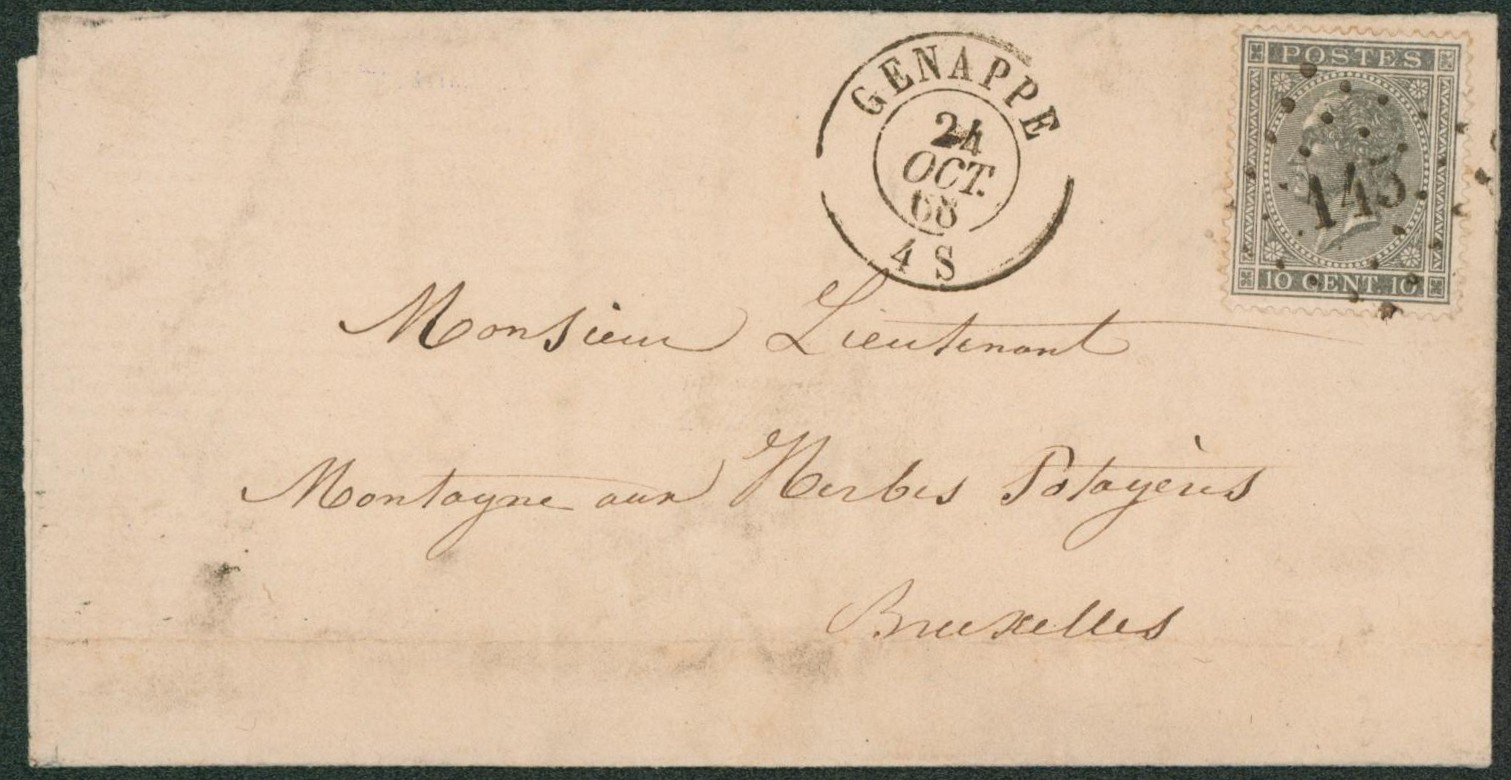 GENAPPE
24
OCT.
68
4 S
POSTES
145
10 CENT. 10
Monsieur Lieutenant
Montagne aux Herbes Potagères
Bruxelles